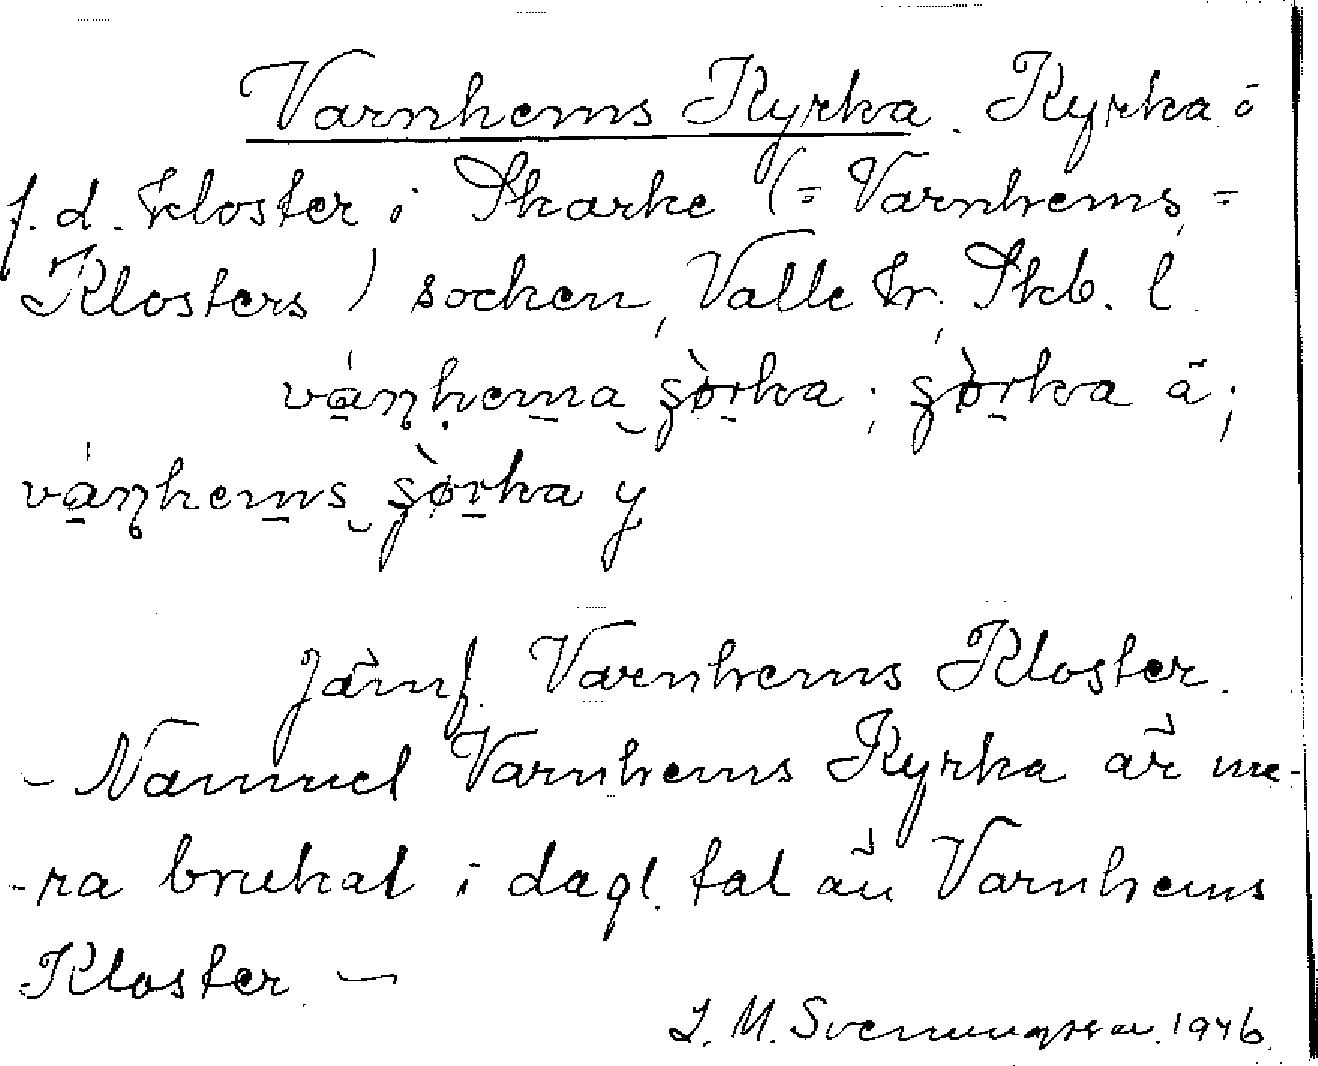 Varnhems Kyrka. Kyrka i
f.d. kloster i Skarke (= Varnhems=
Klosters) socken, Valle hr, Skb. l.
vánhema ʂò̱rka; ʂò̱rka ä;
vánhems ʂò̱rka y
Jämf. Varnhems Kloster.
- Namnet Varnhems Kyrka är me-
-ra brukat i dagl. tal än Varnhems
Kloster. -
J. M. Svenungsson. 1946